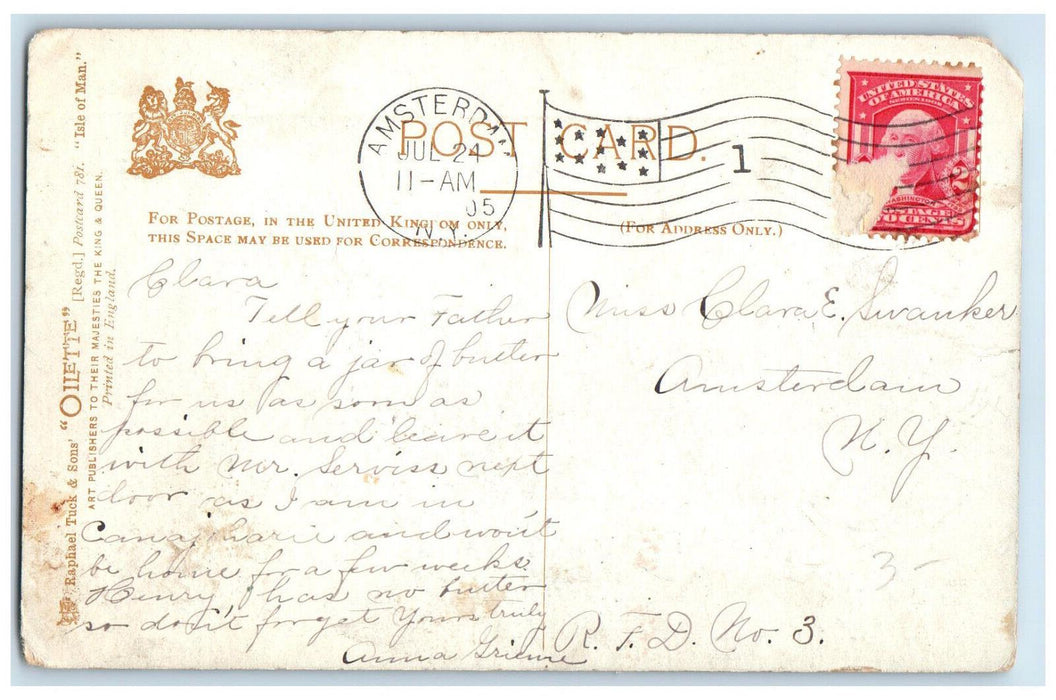 Raphael Tuck & Sons' "OILETTE" [Regd.] Postcard 781. "Isle of Man."
ART PUBLISHERS TO THEIR MAJESTIES THE KING & QUEEN.
Printed in England.
POST CARD.
AMSTERDAM
JUL 24
11-AM
05
N.Y.
1
UNITED STATES
OF AMERICA
WASHINGTON
POSTAGE 2
TWO CENTS
FOR POSTAGE, IN THE UNITED KINGDOM ONLY,
THIS SPACE MAY BE USED FOR CORRESPONDENCE.
(FOR ADDRESS ONLY.)
Clara
Tell your Father
to bring a jar of butter
for us as soon as
possible and leave it
with Mr. Serviss next
door as I am in
Canajharie and won't
be home for a few weeks.
Henry has no butter
so don't forget Yours truly
Anna
Miss Clara E. Swanker
Amsterdam
N.Y.
3-
R.F.D. No. 3.